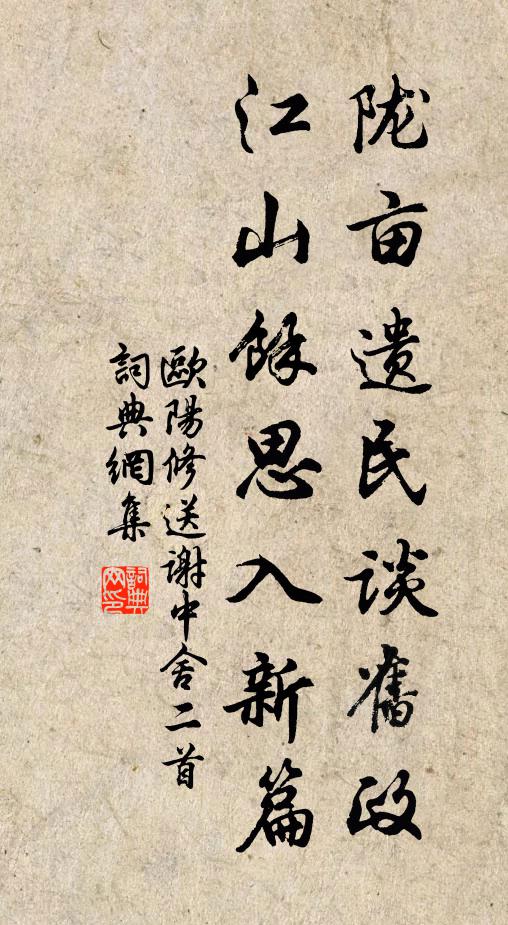 陇亩遗民谈舊政
江山餘思入新篇
歐陽修送謝中舍二首
詞典網集
詞典
网印